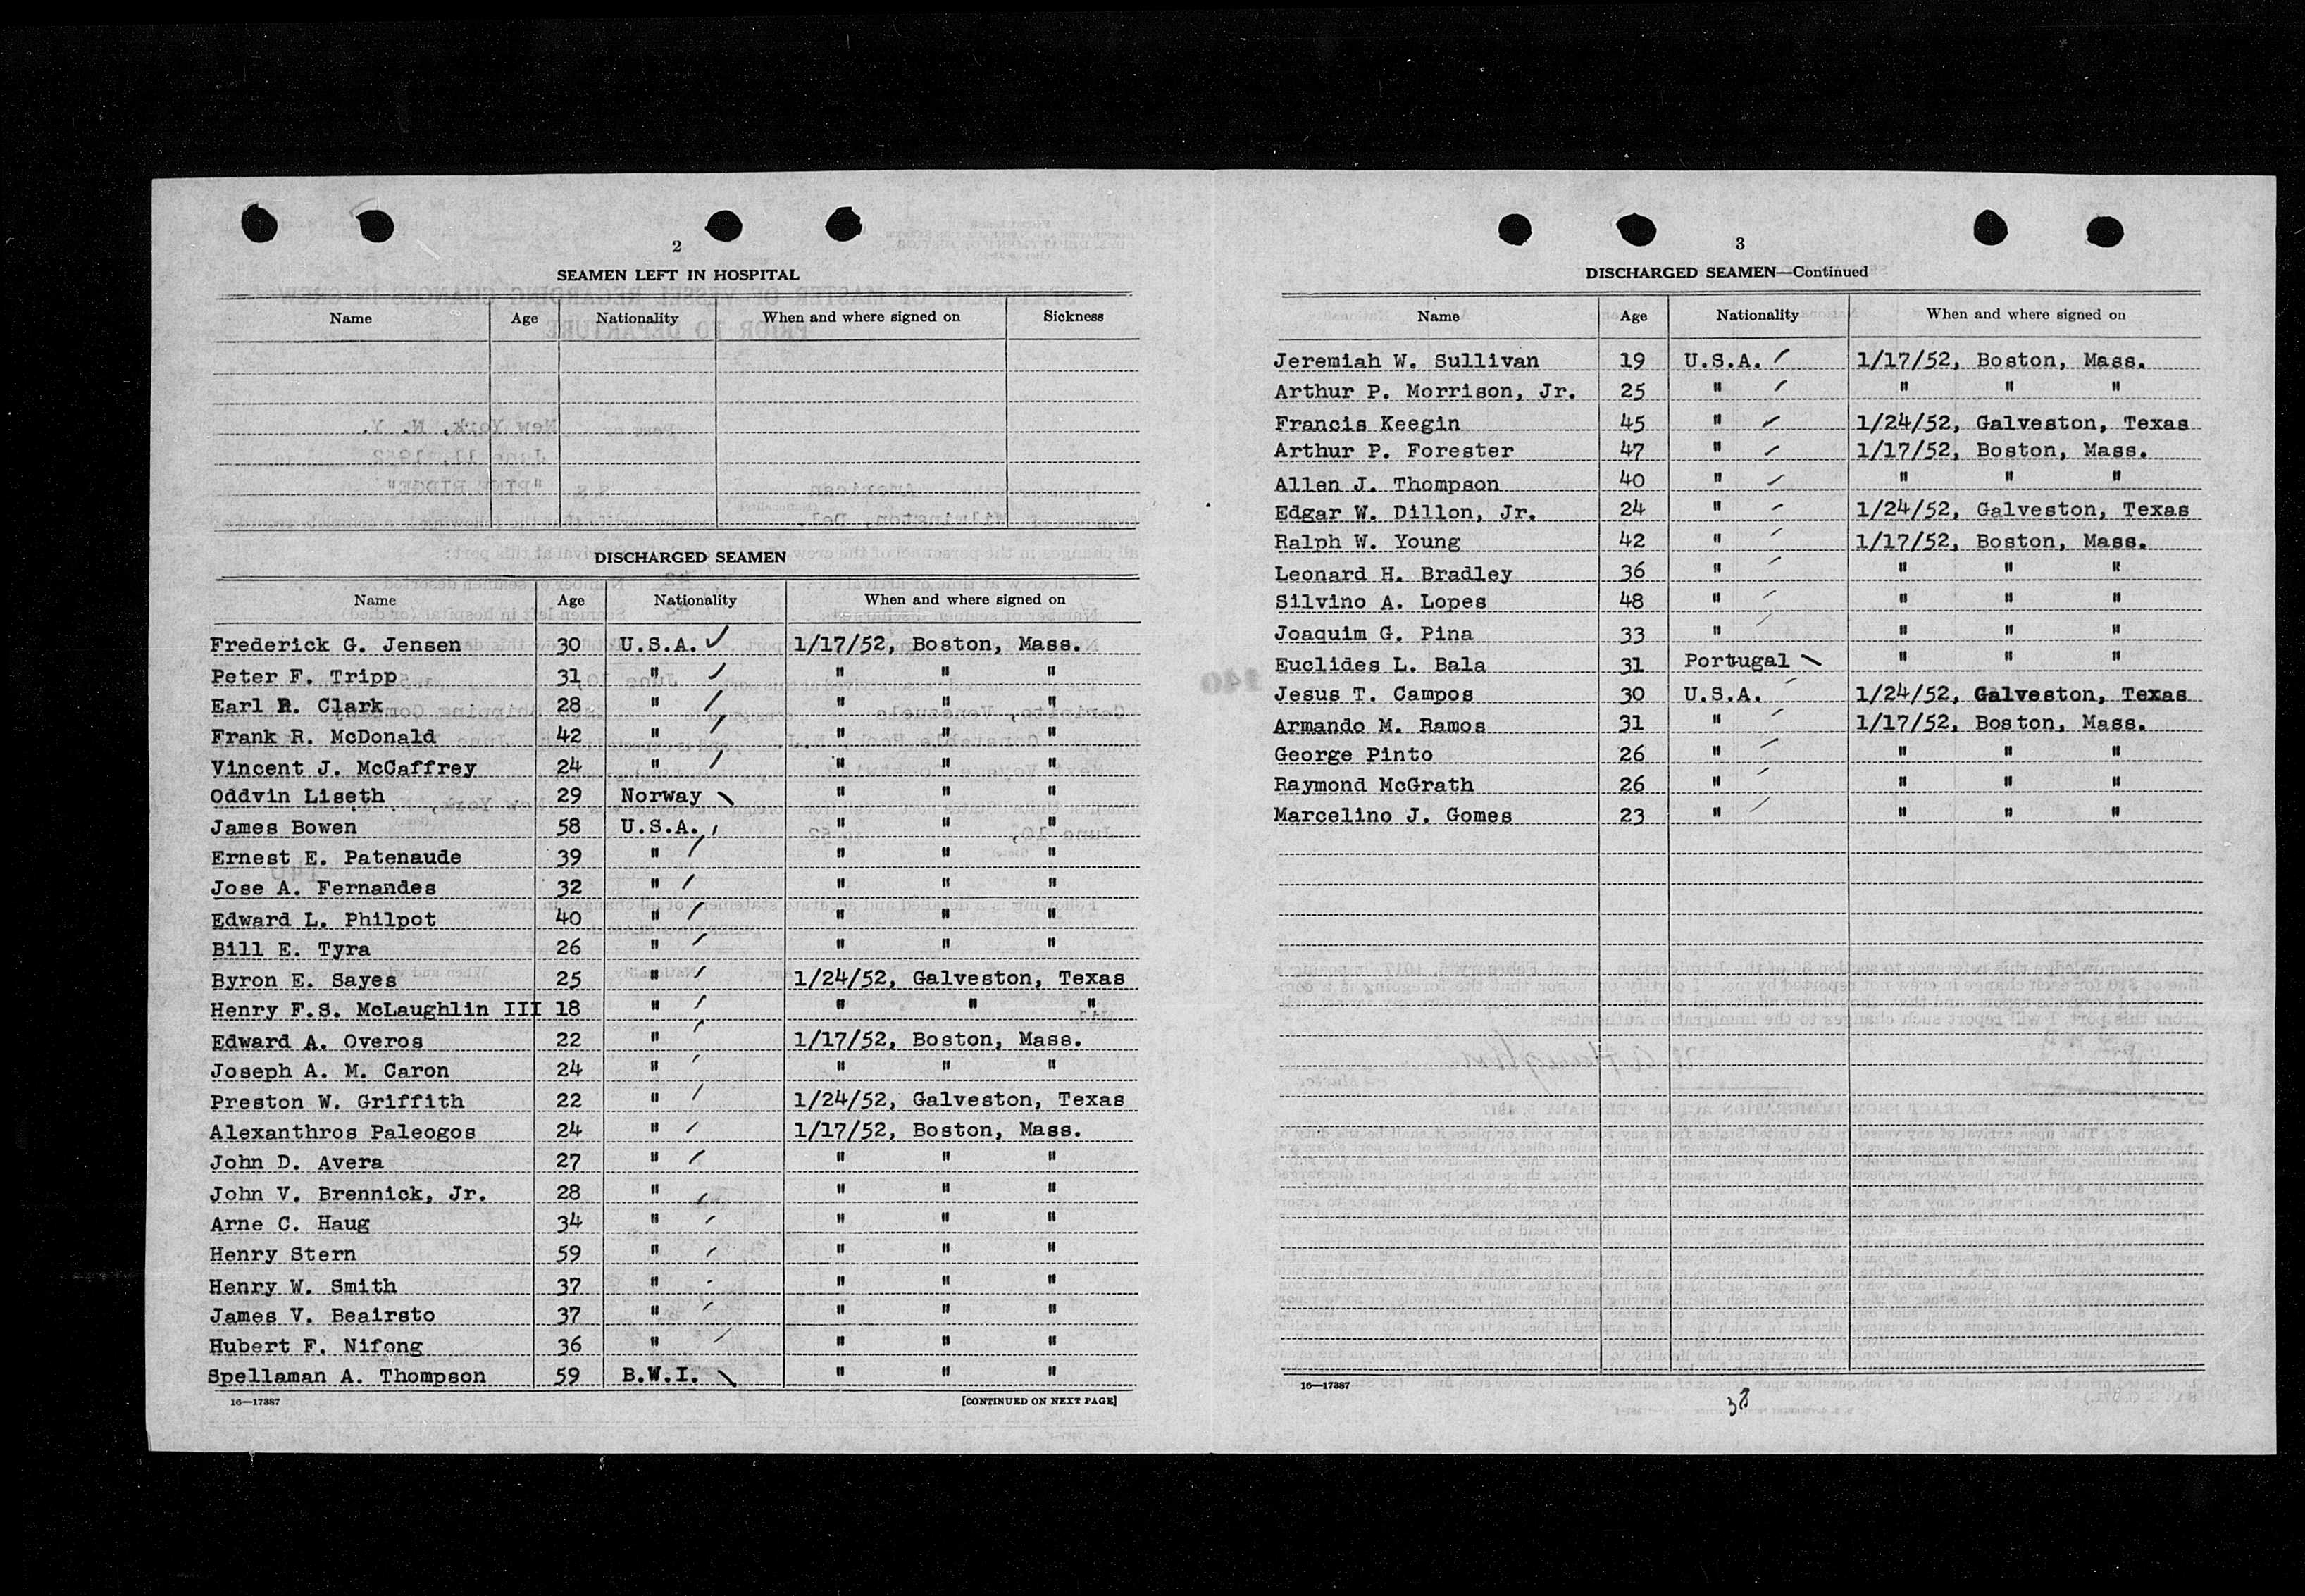 2
SEAMEN LEFT IN HOSPITAL
Name Age Nationality When and where signed on Sickness
DISCHARGED SEAMEN
Name Age Nationality When and where signed on
Frederick G. Jensen 30 U.S.A. ✓ 1/17/52, Boston, Mass.
Peter F. Tripp 31 " " " "
Earl R. Clark 28 " " " "
Frank R. McDonald 42 " " " "
Vincent J. McCaffrey 24 " " " "
Oddvin Liseth 29 Norway " " "
James Bowen 58 U.S.A. " " "
Ernest E. Patenaude 39 " " " "
Jose A. Fernandes 32 " " " "
Edward L. Philpot 40 " " " "
Bill E. Tyra 26 " " " "
Byron E. Sayes 25 " 1/24/52, Galveston, Texas
Henry F.S. McLaughlin III 18 " " " "
Edward A. Overos 22 " 1/17/52, Boston, Mass.
Joseph A. M. Caron 24 " " " "
Preston W. Griffith 22 " 1/24/52, Galveston, Texas
Alexanthros Paleogos 24 " 1/17/52, Boston, Mass.
John D. Avera 27 " " " "
John V. Brennick, Jr. 28 " " " "
Arne C. Haug 34 " " " "
Henry Stern 59 " " " "
Henry W. Smith 37 " " " "
James V. Beairsto 37 " " " "
Hubert F. Nifong 36 " " " "
Spellaman A. Thompson 59 B.W.I. " " "
16—17387 [CONTINUED ON NEXT PAGE]
3
DISCHARGED SEAMEN—Continued
Name Age Nationality When and where signed on
Jeremiah W. Sullivan 19 U.S.A. 1/17/52, Boston, Mass.
Arthur P. Morrison, Jr. 25 " " " "
Francis Keegin 45 " 1/24/52, Galveston, Texas
Arthur P. Forester 47 " 1/17/52, Boston, Mass.
Allen J. Thompson 40 " " " "
Edgar W. Dillon, Jr. 24 " 1/24/52, Galveston, Texas
Ralph W. Young 42 " 1/17/52, Boston, Mass.
Leonard H. Bradley 36 " " " "
Silvino A. Lopes 48 " " " "
Joaquim G. Pina 33 " " " "
Euclides L. Bala 31 Portugal " " "
Jesus T. Campos 30 U.S.A. 1/24/52, Galveston, Texas
Armando M. Ramos 31 " 1/17/52, Boston, Mass.
George Pinto 26 " " " "
Raymond McGrath 26 " " " "
Marcelino J. Gomes 23 " " " "
16—17387
38